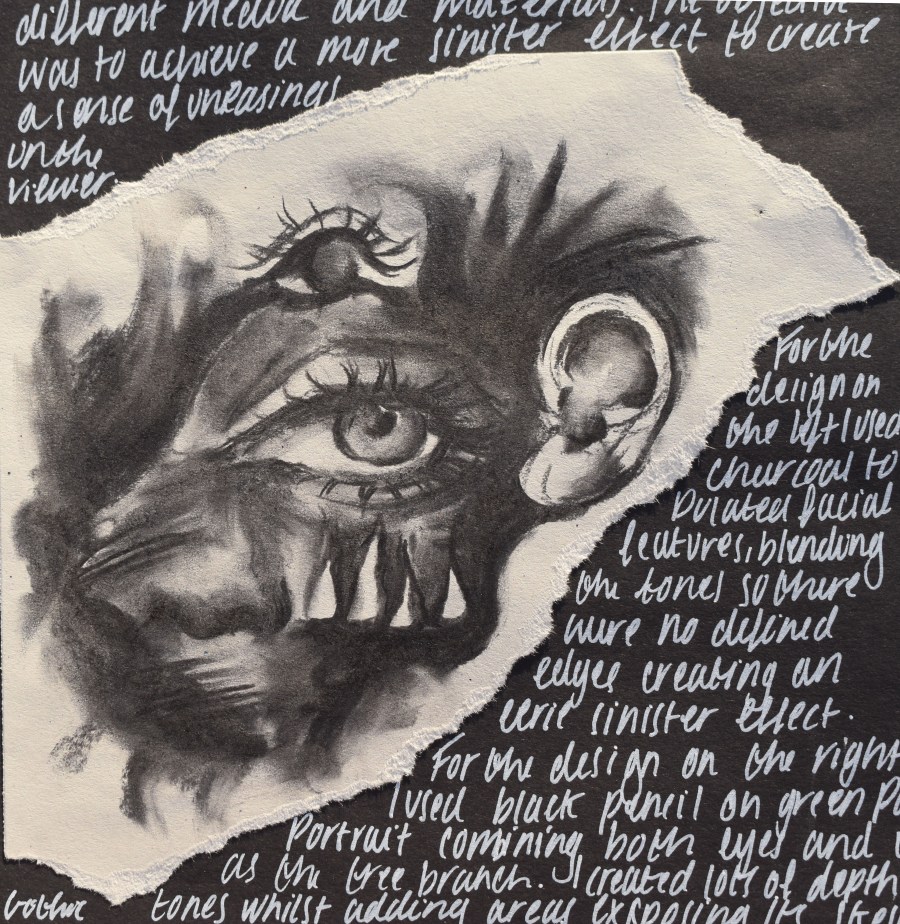 different media and materials. The objective
was to achieve a more sinister effect to create
a sense of uneasiness
on the
viewer.
For the
design on
the left I used
charcoal to
isolated facial
features, blending
the tones so there
were no defined
edges creating an
eerie sinister effect.
For the design on the right
I used black pencil on green
Portrait combining both eyes and
as the tree branch. I created lots of depth
tones whilst adding areas exsposing the